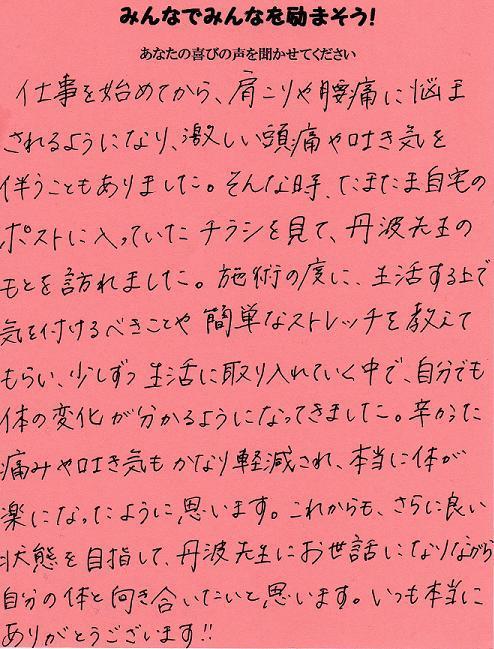 みんなでみんなを励まそう!
あなたの喜びの声を聞かせてください
仕事を始めてから、肩こりや腰痛に悩ま
されるようになり、激しい頭痛や吐き気を
伴うこともありました。そんな時、たまたま自宅の
ポストに入っていたチラシを見て、丹波先生の
もとを訪れました。施術の度に、生活する上で
気を付けるべきことや簡単なストレッチを教えて
もらい、少しずつ生活に取り入れていく中で、自分でも
体の変化が分かるようになってきました。辛かった
痛みや吐き気もかなり軽減され、本当に体が
楽になったように思います。これからも、さらに良い
状態を目指して、丹波先生にお世話になりながら
自分の体と向き合いたいと思います。いつも本当に
ありがとうございます!!